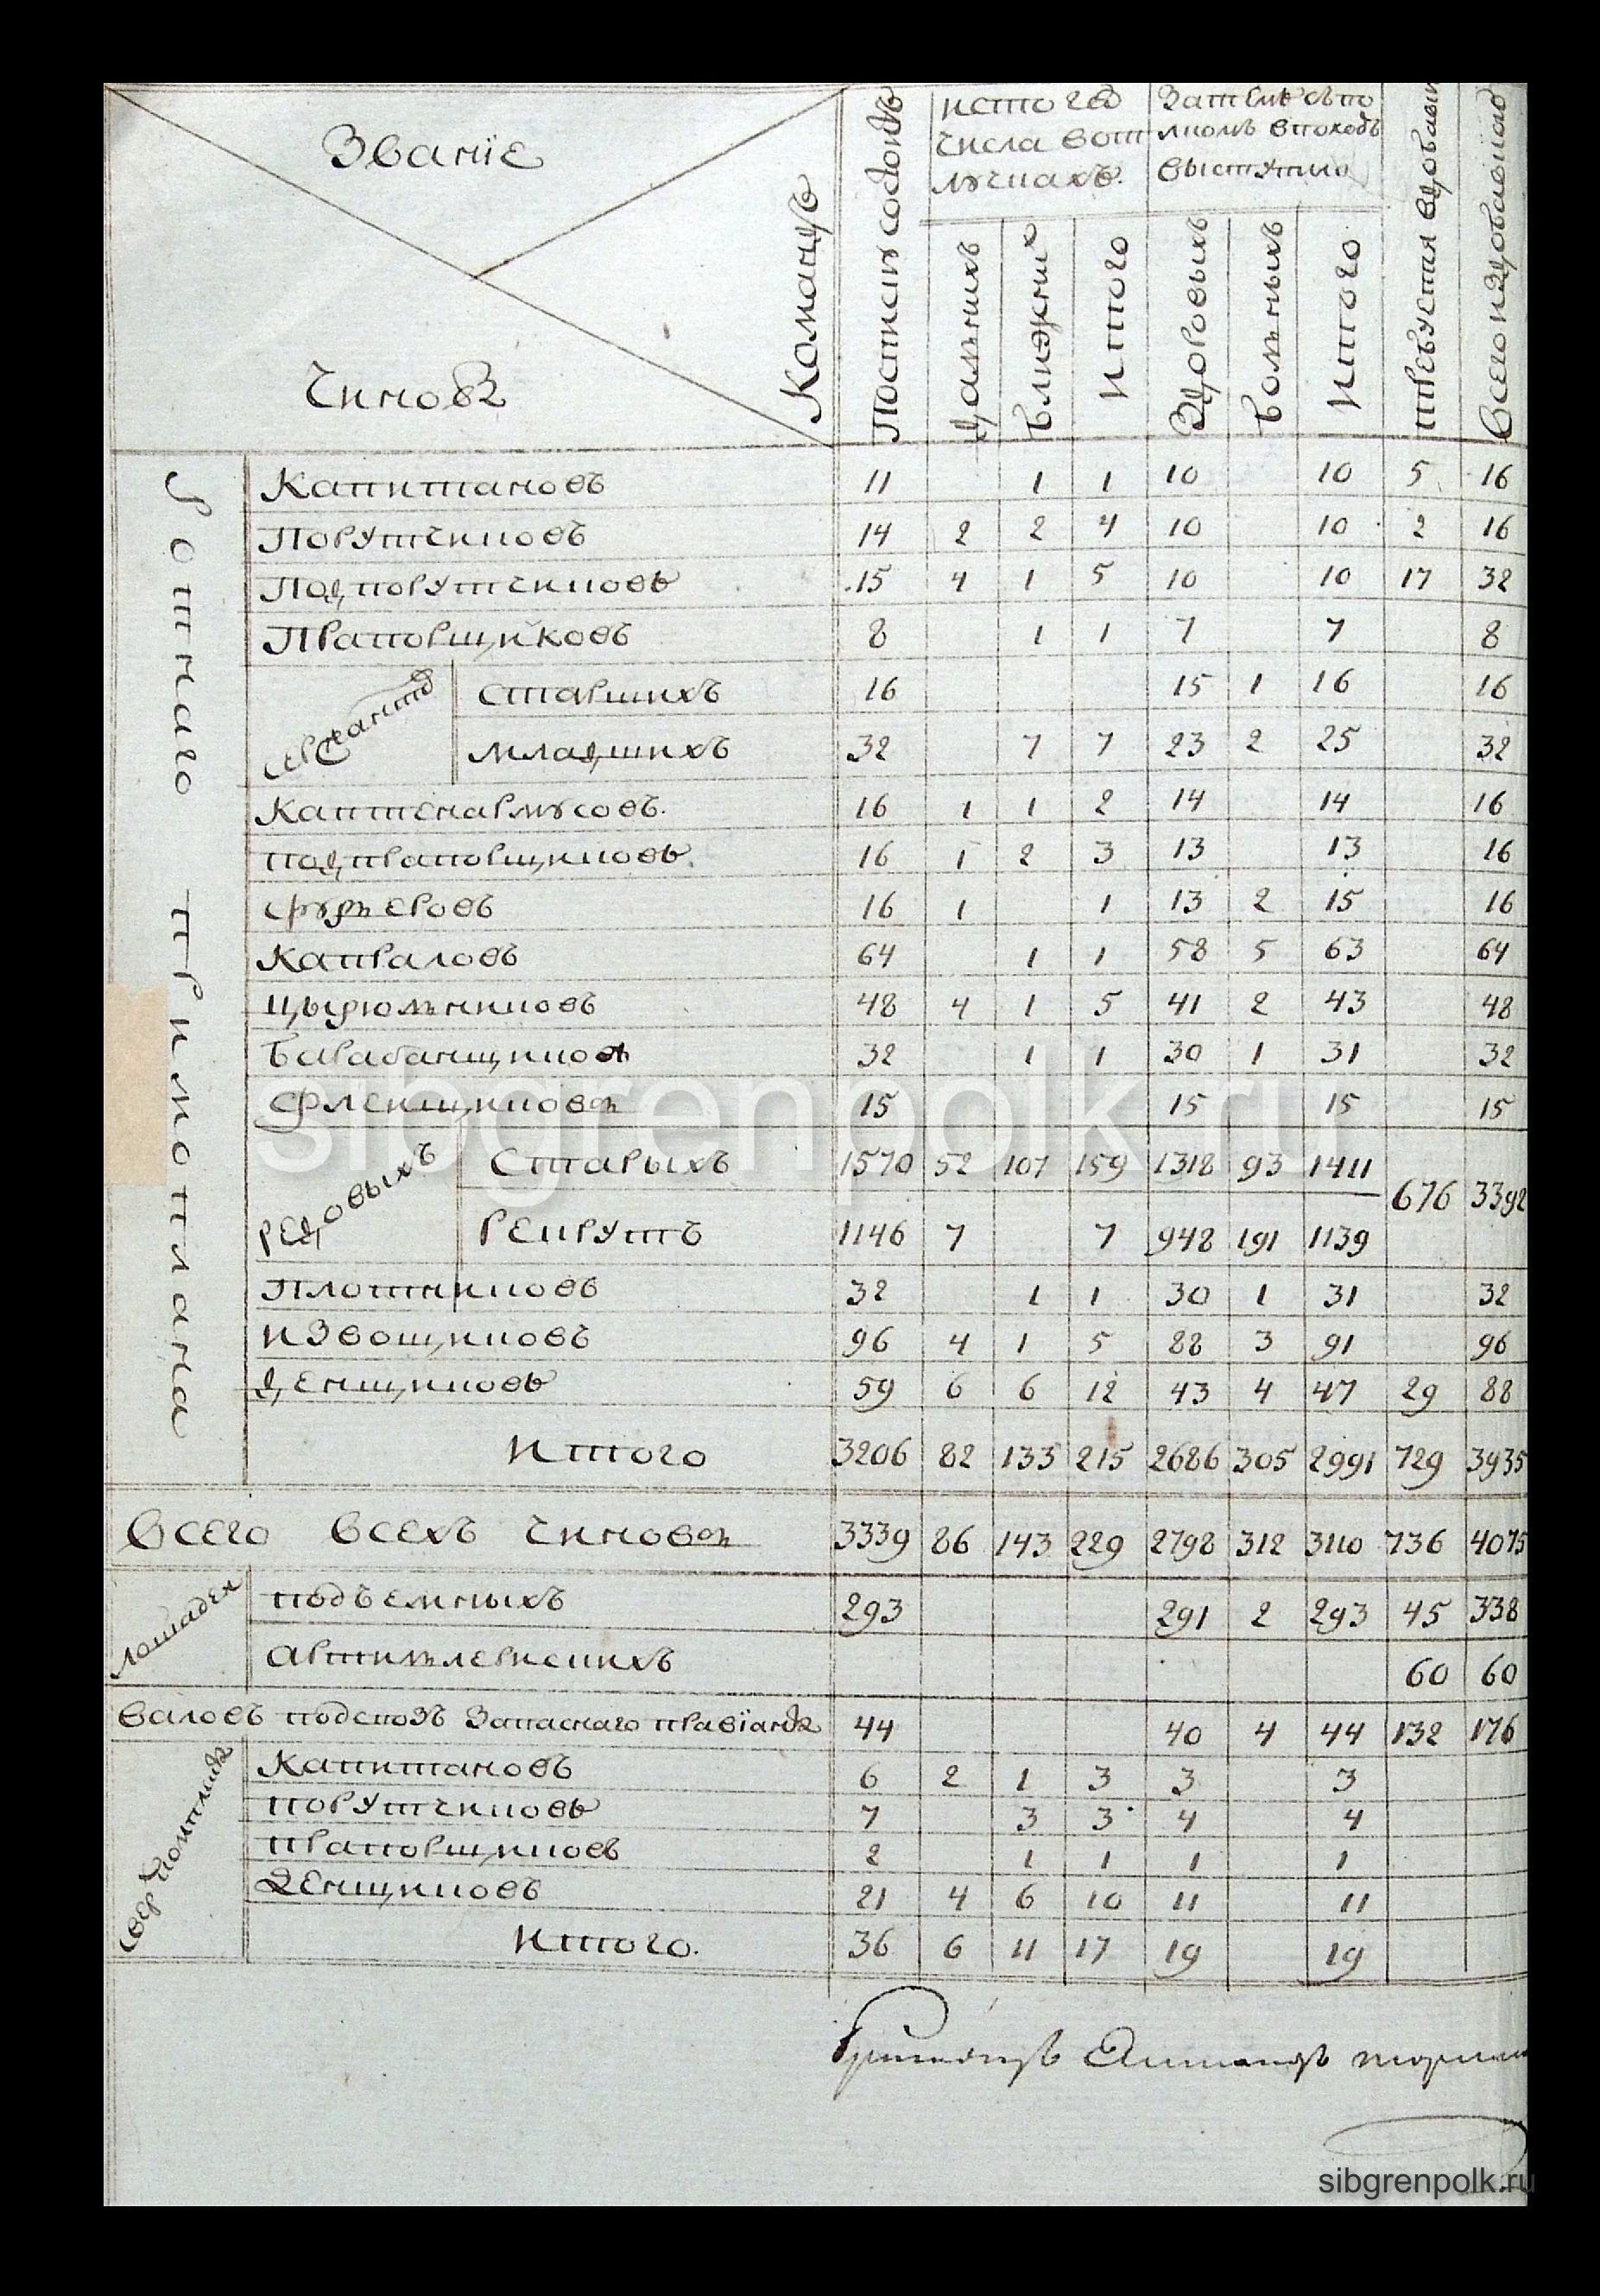 Званїе
Чиновъ
Командъ
По списку состоитъ
ис то го
числа вот
лучкахъ.
дальнихъ
ближних
Итого
За тем съ по
лкомъ в походъ
выступило
Здоровыхъ
Больныхъ
Итого
Всего
Ротнаго примоплана
Капитановъ 11 1 1 10 10 5 16
Порутчиковъ 14 2 2 4 10 10 2 16
Подпорутчиковъ 15 4 1 5 10 10 17 32
Прапорщиковъ 8 1 1 7 7 8
Сержантов
старшихъ 16 15 1 16 16
младшихъ 32 7 7 23 2 25 32
Каптенармусовъ. 16 1 1 2 14 14 16
подпрапорщиковъ. 16 1 2 3 13 13 16
фурьеровъ 16 1 1 13 2 15 16
Капраловъ 64 1 1 58 5 63 64
цырюльниковъ 48 4 1 5 41 2 43 48
Барабанщиковъ 32 1 1 30 1 31 32
Флейщиковъ 15 15 15 15
редовыхъ
Старыхъ 1570 52 107 159 1318 93 1411
676 3392
Рекрутъ 1146 7 7 948 191 1139
Плотниковъ 32 1 1 30 1 31 32
извощиковъ 96 4 1 5 88 3 91 96
денщиковъ 59 6 6 12 43 4 47 29 88
Итого 3206 82 133 215 2686 305 2991 729 3935
Всего всехъ чиновъ 3339 86 143 229 2798 312 3110 736 4075
Лошадеи
подъемныхъ 293 291 2 293 45 338
Артилерискихъ 60 60
валовъ под своз запаснаго правїанта 44 40 4 44 132 176
Капитановъ 6 2 1 3 3 3
порутчиковъ 7 3 3 4 4
прапорщиковъ 2 1 1 1 1
Денщиковъ 21 4 6 10 11 11
Итого. 36 6 11 17 19 19
sibgrenpolk.ru
sibgrenpolk.ru